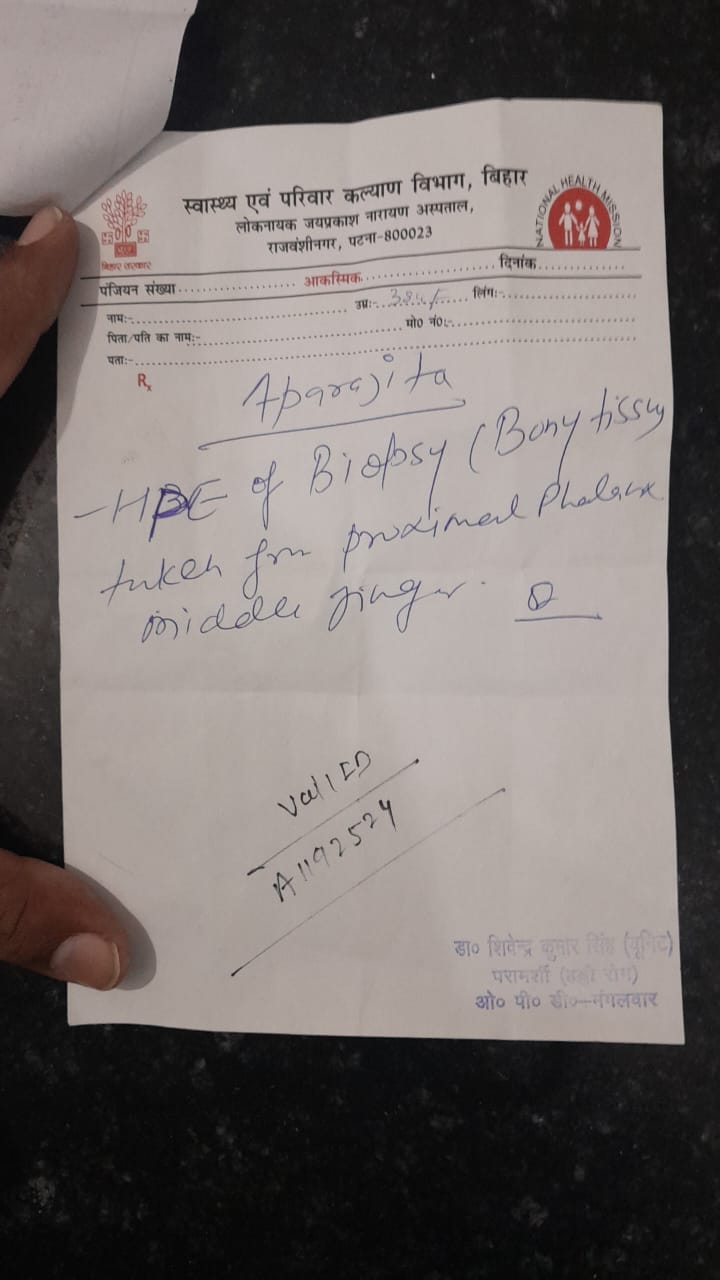 स्वास्थ्य एवं परिवार कल्याण विभाग, बिहार
लोकनायक जयप्रकाश नारायण अस्पताल,
राजवंशीनगर, पटना-800023
बिहार सरकार
NATIONAL HEALTH MISSION
पंजियन संख्या.................. आकस्मिक.................. दिनांक..................
नाम:-.................. उम्र:-.................. लिंग:-..................
पिता/पति का नाम:-.................. मो0 नं0:-..................
पता:-..................
Rx
Aparajita
- HPE of Biopsy (Bony tissue
taken from proximal Phalanx
middle finger.
A1192524
डा० शिवेन्द्र कुमार सिंह (यूनिट)
परामर्शी (हड्डी रोग)
ओ० पी० डी०-मंगलवार